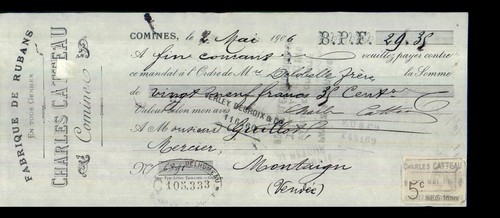 FABRIQUE DE RUBANS
EN TOUS GENRES
CHARLES CATTEAU
Comines
COMINES, le 2 Mai 1906 B.P.F. 29.35
A fin courant veuillez payer contre
ce mandat à l'Ordre de Mr Delvalle frères la Somme
de vingt neuf francs 35 Cent
Valeur selon mon avis Charles Catteau
A Monsieur Guillot
Mercier,
No Montaigu
(Vendée)
105,333
CHARLES CATTEAU
5c